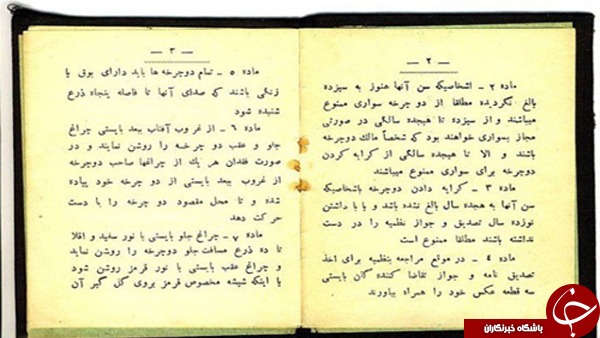 — ۲ —
ماده ۲ - اشخاصیکه سن آنها هنوز به سیزده
بالغ نگردیده مطلقا از دو چرخه سواری ممنوع
میباشند و از سیزده تا هیجده سالگی در صورتی
مجاز بسواری خواهند بود که شخصاً مالك دوچرخه
باشند و الا تا هیجده سالگی از کرایه کردن
دوچرخه برای سواری ممنوع میباشند
ماده ۳ - کرایه دادن دوچرخه باشخاصیکه
سن آنها به هجده سال بالغ نشده باشد و یا با داشتن
نوزده سال تصدیق و جواز نظمیه را در دست
نداشته باشند مطلقا ممنوع است
ماده ٤ - در موقع مراجعه بنظمیه برای اخذ
تصدیق نامه و جواز تقاضا کننده گان بایستی
سه قطعه عکس خود را همراه بیاورند
— ۳ —
ماده ٥ - تمام دوچرخه ها باید دارای بوق یا
زنگی باشند که صدای آنها تا فاصله پنجاه ذرع
شنیده شود
ماده ٦ - از غروب آفتاب ببعد بایستی چراغ
جلو و عقب دو چرخه را روشن نمایند و در
صورت فقدان هر یك از چراغها صاحب دوچرخه
از غروب ببعد بایستی از دو چرخه خود پیاده
شده و تا محل مقصود دو چرخه را با دست
حرکت دهد
ماده ۷ - چراغ جلو بایستی با نور سفید و اقلا
تا ده ذرع مسافت جلو دوچرخه را روشن نماید
و چراغ عقب بایستی با نور قرمز روشن شود
یا اینکه شیشه مخصوص قرمز بروی گل گیر آن
باشگاه خبرنگاران